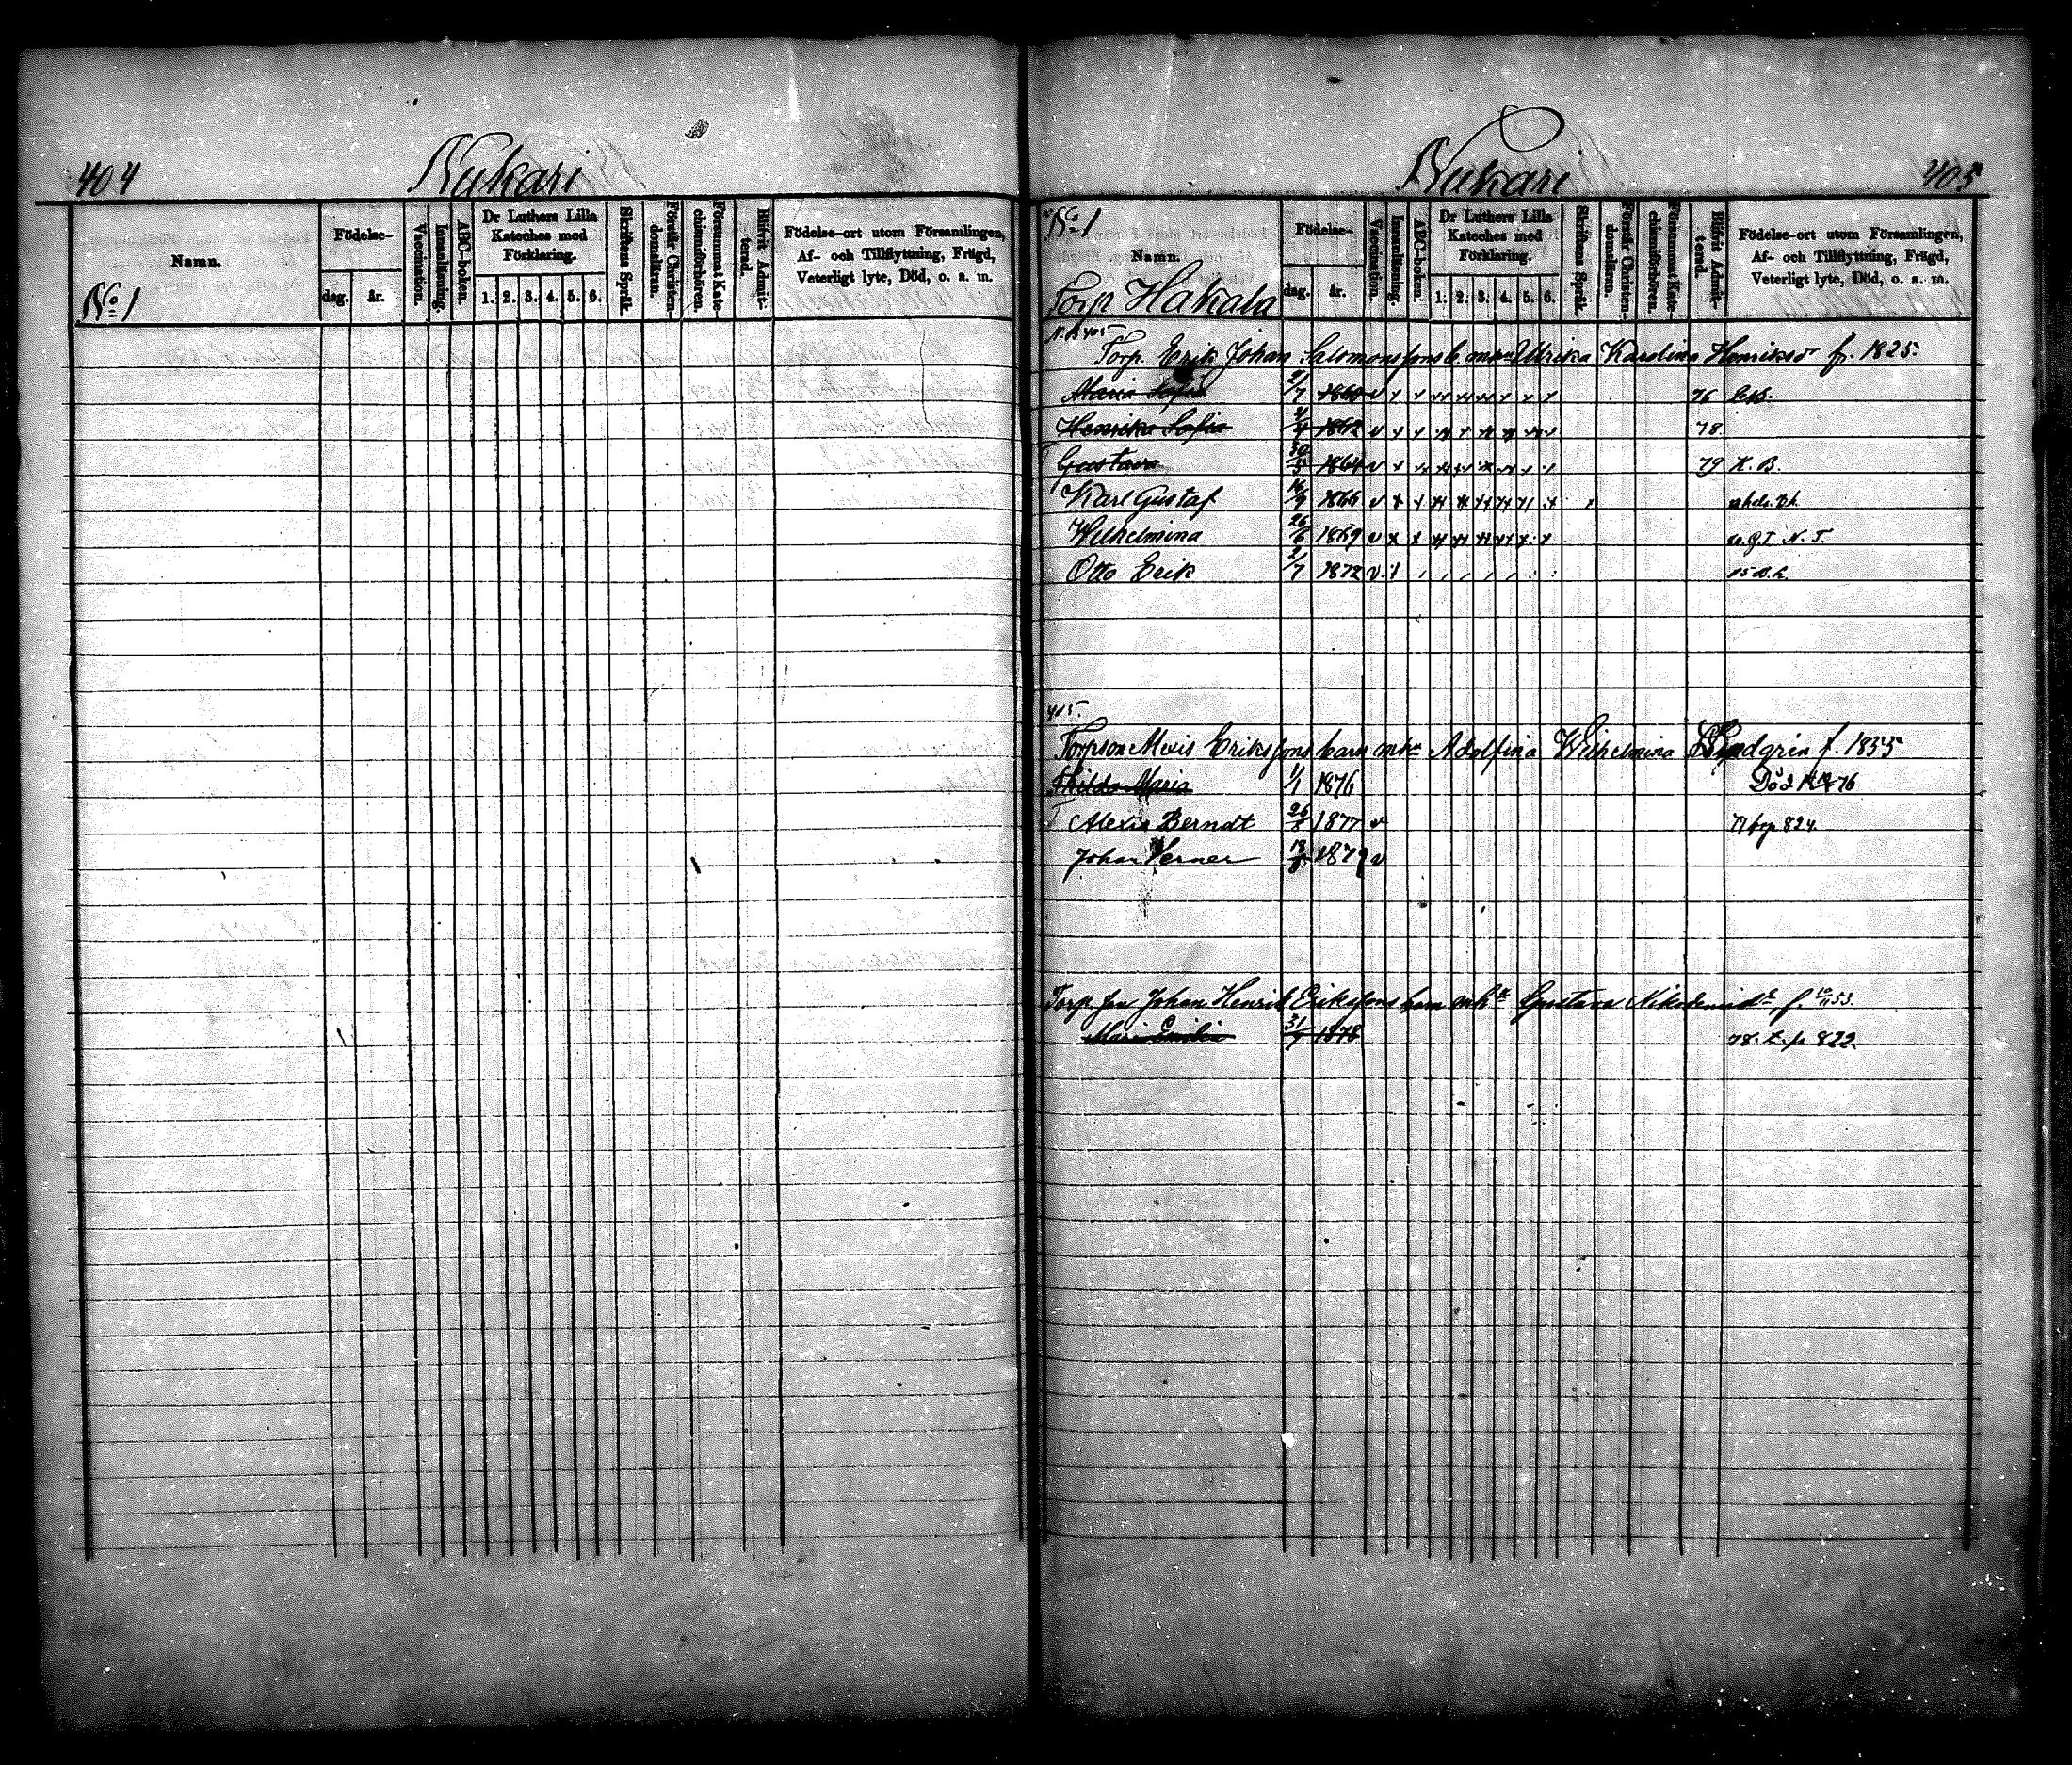 404
Nukari
Namn.
Födelse-
dag. år.
Vaccination.
Innanläsning.
ABC-boken.
Dr Luthers Lilla
Kateches med
Förklaring.
1. 2. 3. 4. 5. 6.
Skriftens Språk.
Förstår Christen-
domsläran.
Försummat Kate-
chismiförhören.
Blifvit Admit-
terad.
Födelse-ort utom Församlingen,
Af- och Tillflyttning, Frägd,
Veterligt lyte, Död, o. a. m.
No 1
Nukari
405
No 1
Namn.
Födelse-
dag. år.
Vaccination.
Innanläsning.
ABC-boken.
Dr Luthers Lilla
Kateches med
Förklaring.
1. 2. 3. 4. 5. 6.
Skriftens Språk.
Förstår Christen-
domsläran.
Försummat Kate-
chismiförhören.
Blifvit Admit-
terad.
Födelse-ort utom Församlingen,
Af- och Tillflyttning, Frägd,
Veterligt lyte, Död, o. a. m.
Torp Hakala
405
Torp. Erik Johan Salomonssons b. Ulrika Karolina Henriksdr f. 1825.
Maria Sofia 1860 v 76
Henrika Sofia 1862 v 78
Gustava 30/5 1864 v 79 K. B.
Karl Gustaf 16/9 1866 v
Wilhelmina 26/6 1869 v N. T.
Otto Erik 2/7 1872 v
405.
Torpson Alexis Erikssons barn Adolfina Wilhelmina Lindgren f. 1855
Maria 1/1 1876 Död 76
T Alexis Berndt 1877 v p 824.
Johan Verner 1879 v
Torp. son Johan Henrik Erikssons barn Gustava f. 10/11 53.
Maria Emilia 31/7 1878 78. p 822.